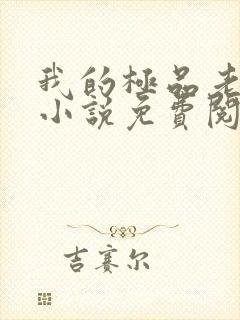 我的極品老
小說免費閱
吉賽尔